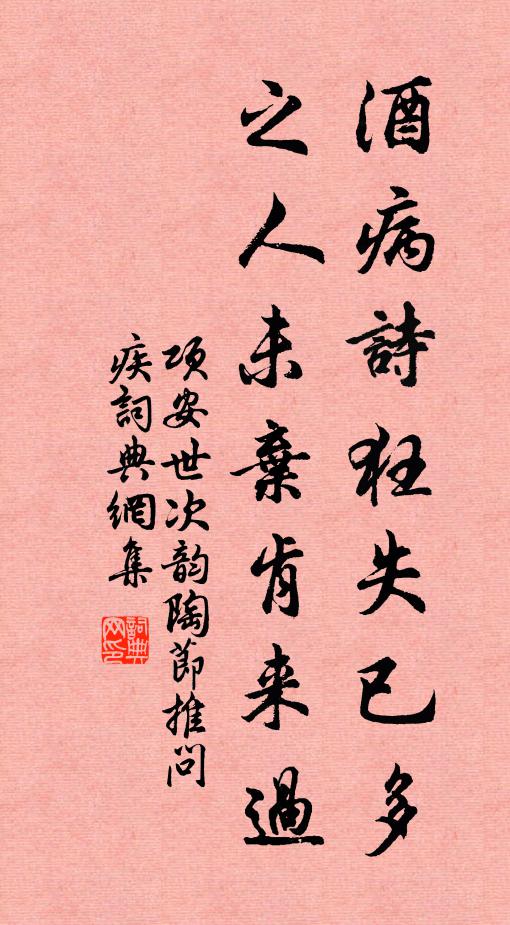 酒病詩狂失已多
之人未棄肯来過
项安世次韵陶節推问
疾詞典網集
詞典网印